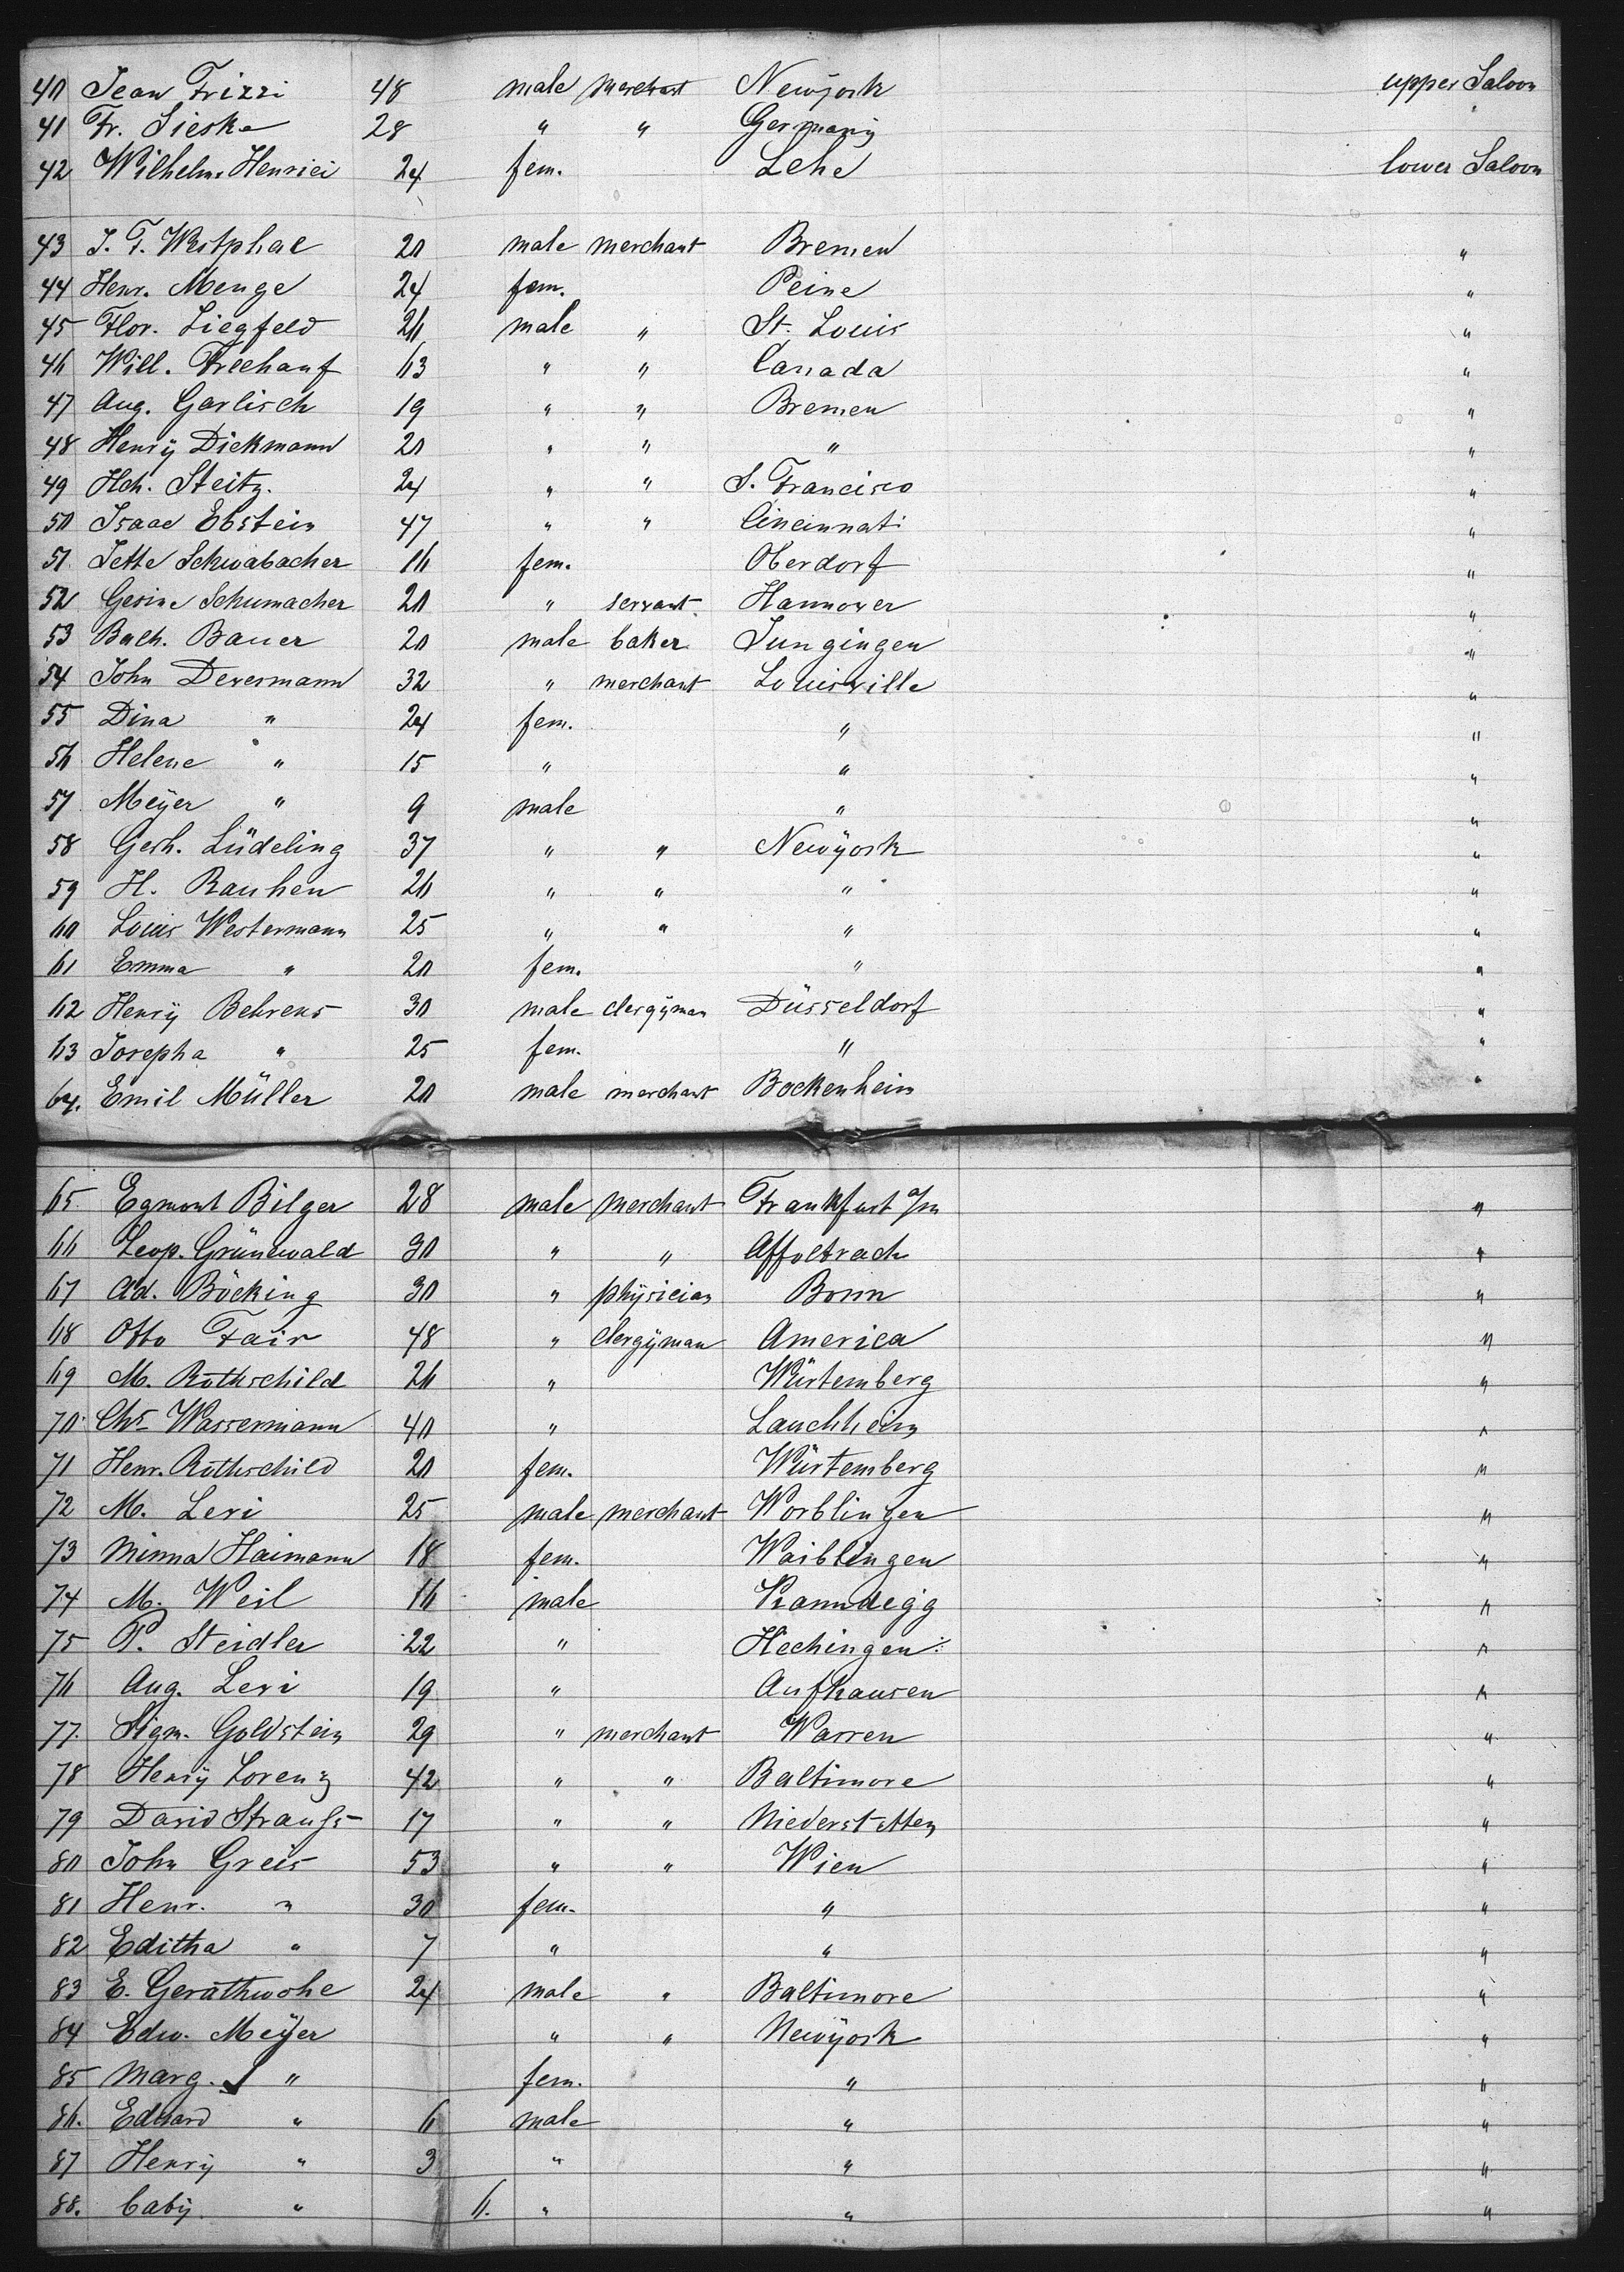 40 Jean Frizzi 48 male merchant Newyork upper Saloon
41 Fr. Sieske 28 " " Germany "
42 Wilhelm. Henrici 24 fem. Lehe lower Saloon
43 J. F. Westphal 20 male merchant Bremen "
44 Henr. Menge 24 fem. Peine "
45 Flor. Ziegfeld 26 male " St. Louis "
46 Will. Freehauf 63 " " Canada "
47 Aug. Garlisch 19 " " Bremen "
48 Henry Dickmann 20 " " " "
49 Hch. Steitz. 24 " " S. Francisco "
50 Isaac Ebstein 47 " " Cincinnati "
51. Jette Schwabacher 16 fem. Oberdorf "
52 Gesine Schumacher 20 " servant Hannover "
53 Bauer 20 male baker Jungingen "
54 John Devermann 32 " merchant Louisville "
55 Dina " 24 fem. " "
56 Helene " 15 " " "
57 Meÿer " 9 male " "
58 Gerh. Lüdeling 37 " " Newÿork "
59 H. Rauhen 26 " " " "
60 Louis Westermann 25 " " " "
61 Emma " 20 fem. " "
62 Henrÿ Behrens 30 male clergÿman Düsseldorf "
63 Josepha " 25 fem. " "
64. Emil Müller 20 male merchant Bockenheim "
65. Egmont Bilger 28 male merchant Frankfurt a/m "
66 Leop. Grünewald 30 " " Affoltrach "
67 Ad. Böcking 30 " phÿsician Bonn "
68 Otto Fair 48 " clergÿman America "
69 M. Rothschild 26 " Würtemberg "
70. Chs Wassermann 40 " Lauchheim "
71 Henr. Rothschild 20 fem. Würtemberg "
72 M. Levi 25 male merchant Worblingen "
73 Minna Haimann 18 fem. Waiblingen "
74 M. Weil 16 male "
75 P. Steidler 22 " Hechingen "
76 Aug. Levi 19 " Aufhausen "
77. Sigm. Goldstein 29 " merchant Warren "
78 Henrÿ Lorenz 42 " " Baltimore "
79 David Strauss 17 " " Niederstetten "
80 John Greis 53 " " Wien "
81 Henr. " 30 fem. " "
82 Editha " 7 " " "
83 E. Gerathwohl 24 male " Baltimore "
84 Edw. Meÿer " " Newÿork "
85 Marg. " fem. " "
86. Eduard " 6 male " "
87 Henrÿ " 3 " " "
88. babÿ. " 6. " " "